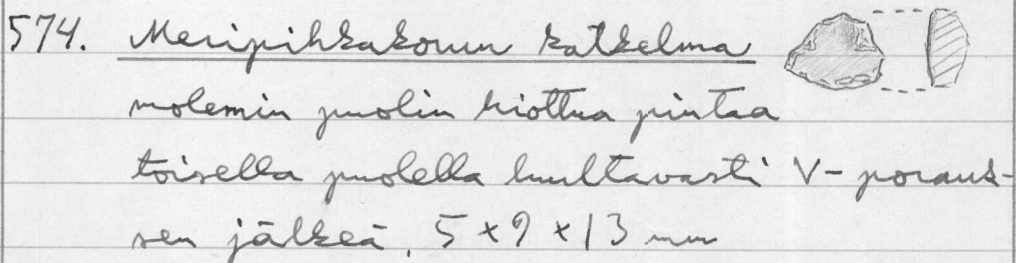 574. Meripihkakorun katkelma
molemin puolin hiottua pintaa
toisella puolella luultavasti V-porauk-
sen jälkeä, 5x9x13 mm